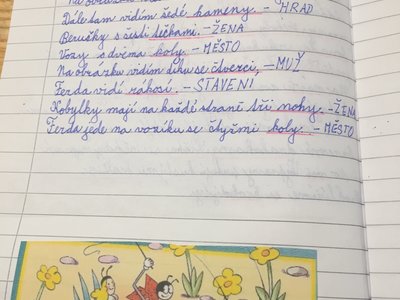 Na obrázku
Dále tam vidím šedé kameny. - HRAD
Berušky s šesti tečkami. - ŽENA
Vozy s dvěma koly. - MĚSTO
Na obrázku vidím díku se čtverci, - MUŽ
Ferda vidí rákosí. - STAVENÍ
Kobylky mají na každé straně tři nohy. - ŽENA
Ferda jede na vozíku se čtyřmi koly. - MĚSTO